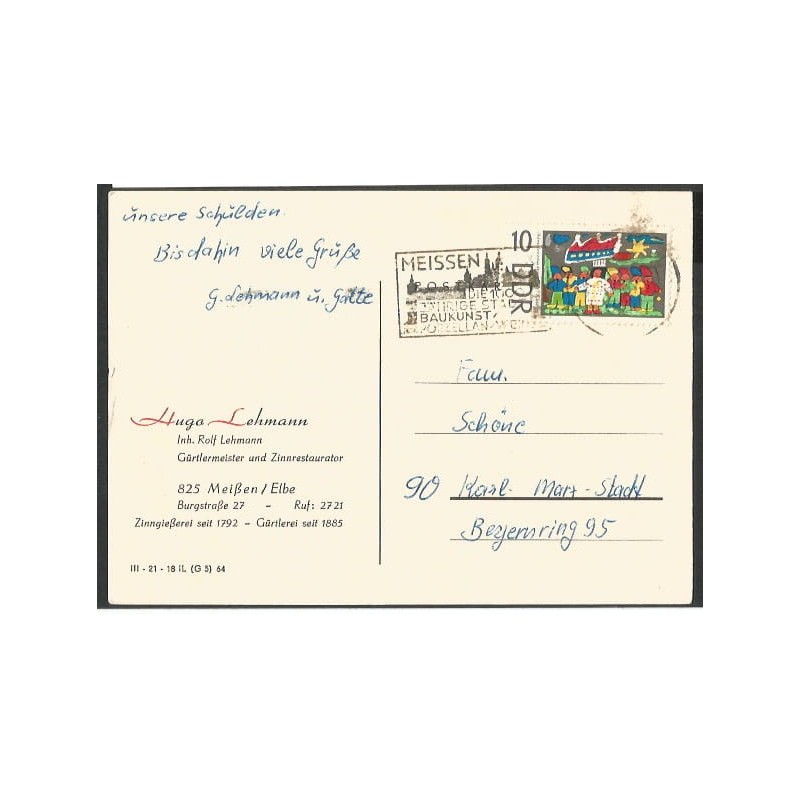 unsere Schulden.
Bis dahin viele Grüße
G. Lehmann u. Gatte
Hugo Lehmann
Inh. Rolf Lehmann
Gürtlermeister und Zinnrestaurator
825 Meißen/Elbe
Burgstraße 27 - Ruf: 2721
Zinngießerei seit 1792 - Gürtlerei seit 1885
III - 21 - 18 iL (G 5) 64
10 DDR
MEISSEN
DIE
BAUKUNST/
Fam.
Schöne
90 Karl-Marx-Stadt
95